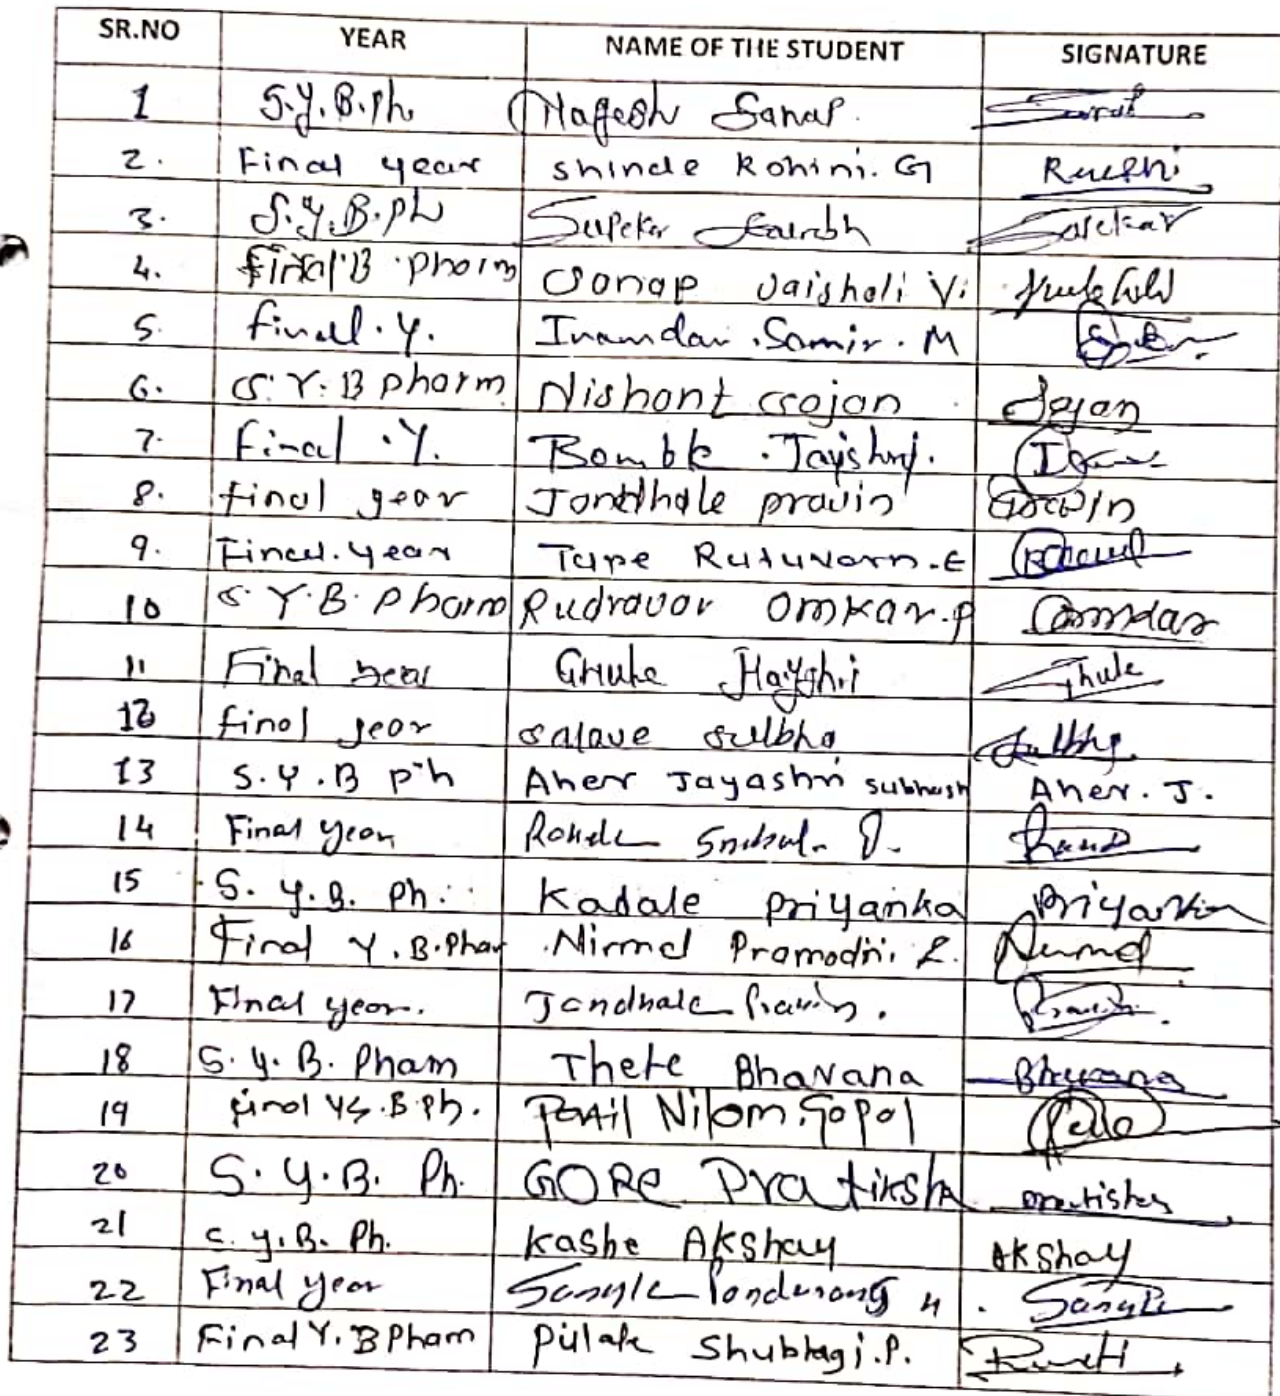 SR.NO YEAR NAME OF THE STUDENT SIGNATURE
1 S.Y.B.Ph. Nagesh Sanap. Sanap
2. Final year Shinde Rohini. G
3. S.Y.B.Ph Supekar Saurabh Supekar
4. final B.pharm Sanap Vaishali V.
5. final. Y. Inamdar. Samir. M
6. S.Y.B pharm Nishant Sajan Sajan
7. final. Y. Bombe. Jayshri.
8. final year Jondhale pravin Pravin
9. Final. year Tupe Rutuvarn. E
10 S.Y.B. pharm Rudravar Omkar. P Omkar
11 Final year Ghule Jayshri Ghule
12 final year Salave Sulbha Sulbha
13 S.Y.B ph Aher Jayashri Subhash Aher. J.
14 Final year
15 S. Y. B. Ph. Kadale Priyanka Priyanka
16 Final Y.B.Phar Nirmal Pramodni. R. Nirmal
17 Final year. Jondhale Pravin. Pravin
18 S. Y. B. Pham Thete Bhavana Bhavana
19 final B.Ph. Patil Nilam. Gopal
20 S. Y. B. Ph. GORe Pratiksha
21 S. y. B. Ph. Kashe AKshay AKshay
22 Final year Sangle Pandurang Sangle
23 Final Y. B Pham Pulate Shubhagi. P.